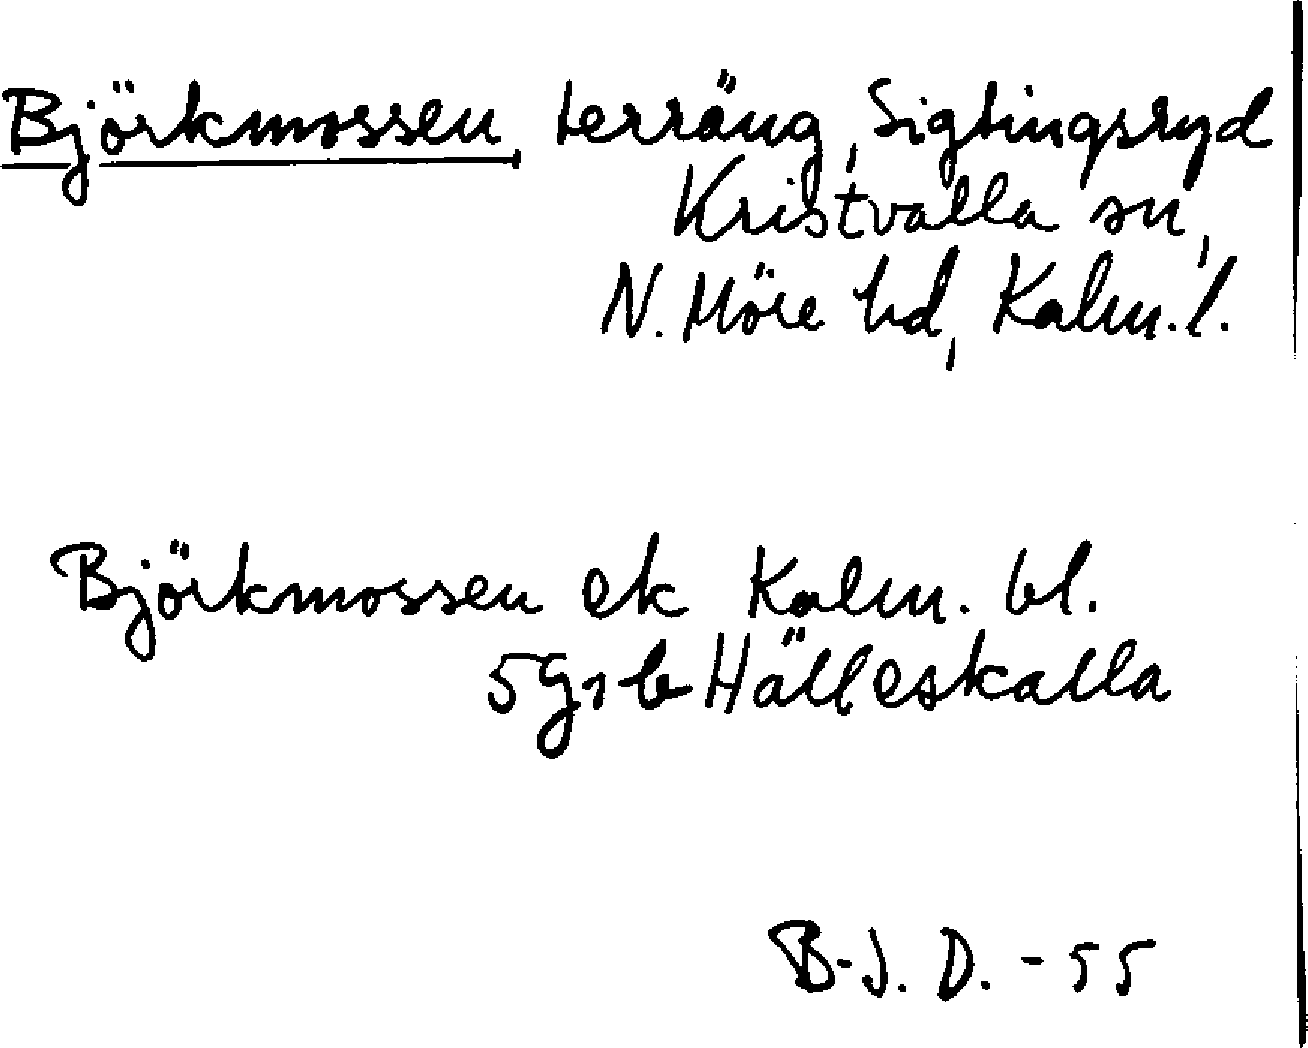 Björkmossen, terräng, Sigtingsryd
Kristvalla sn,
N. Möre hd, Kalm. l.
Björkmossen ek Kalm. bl.
5 Gj Hälleskalla
B-J. D. - 55